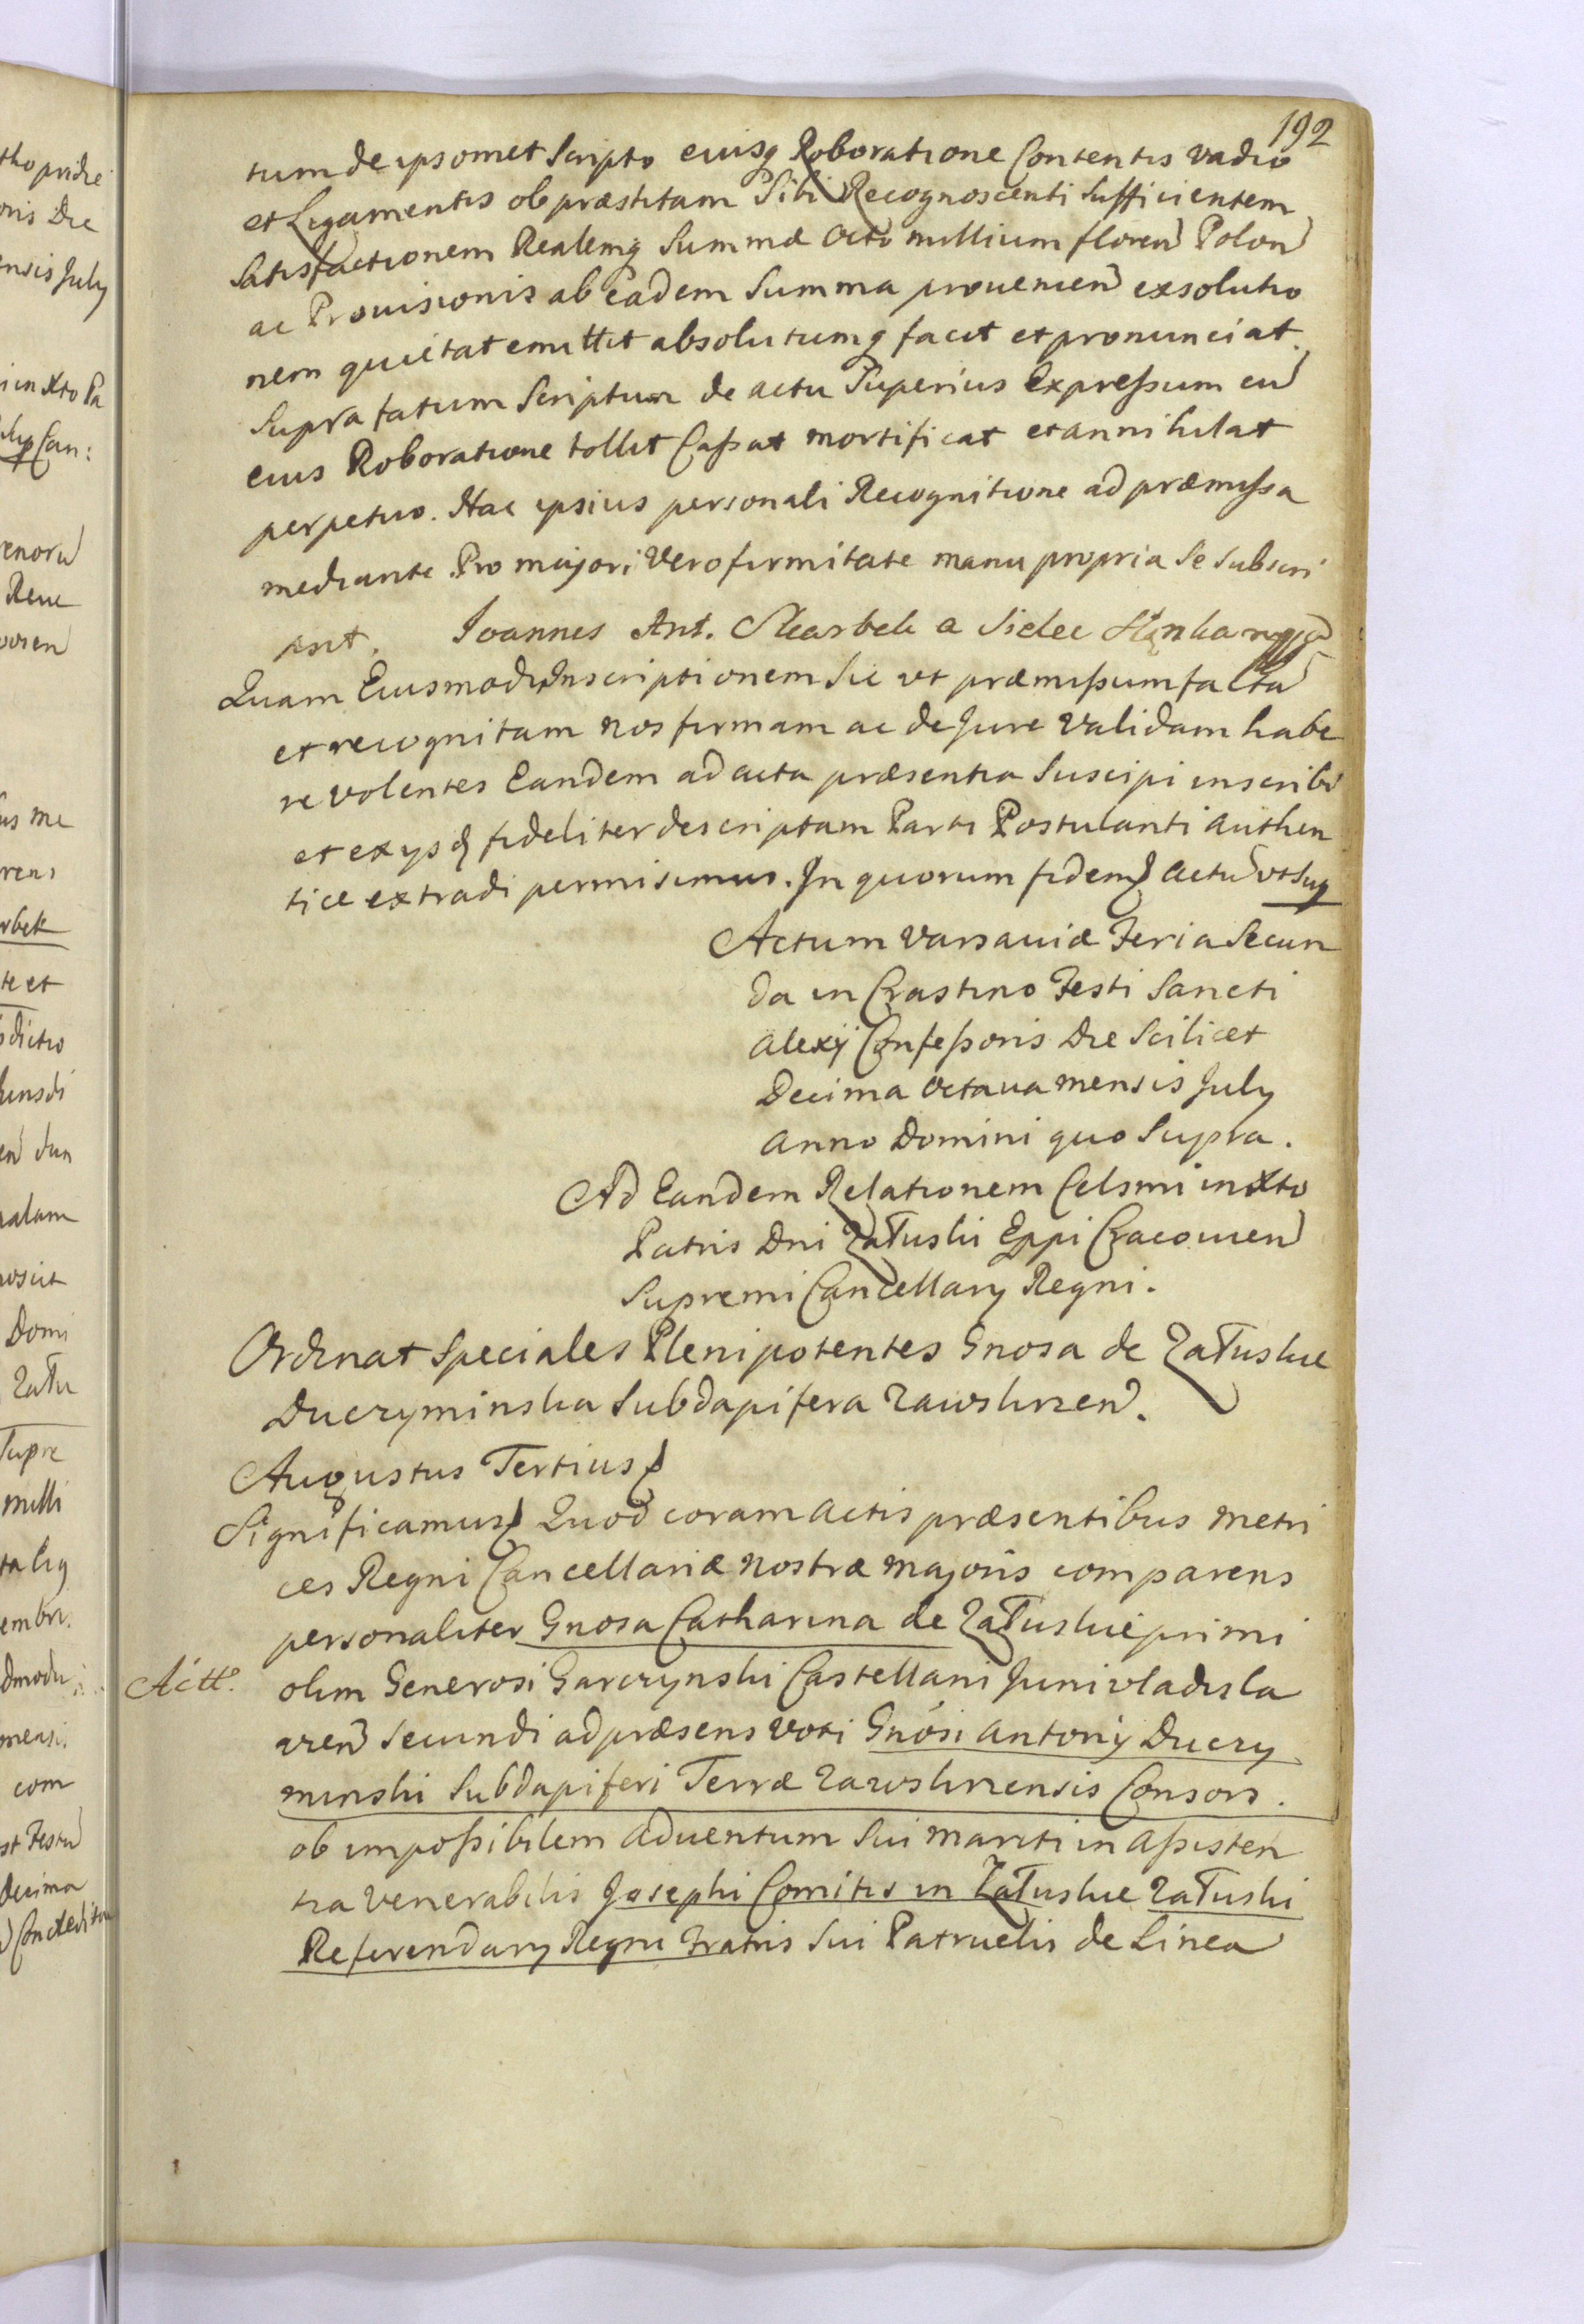 192
tum de ipsomet Scripto eiusq Roboratione Contentis vadio
et Ligamentis ob præstitam Sibi Recognoscenti Sufficientem
Satisfactionem Realemq Summæ Octo millium floren Polon
ac Prouisionis ab Eadem Summa prouenien exsolutio
nem quietat emittit absolutumq facit et pronunciat.
Supra fatum Scriptum de actu Superius Expressum cu
eius Roboratione tollit Cassat mortificat et annihilat
perpetuo. Hac ipsius personali Recognitione ad præmissa
mediante. Pro majori Vero firmitate manu propria Se Subscri
psit. Joannes Ant. Skarbek a Sielec
Quam Eiusmodi Inscriptionem Sic ut præmissum facta
et recognitam nos firmam ac de Jure Validam habe
re volentes Eandem ad acta præsentia Suscipi inscribi
et ex ijsd fideliter descriptam Parti Postulanti authen
tice extradi permisimus. In quorum fidem Actu ut Sup
Actum Varsauiæ Feria Secun
da in Crastino Festi Sancti
Alexij Confessoris Die Scilicet
Decima Octaua mensis July
Anno Domini quo Supra.
Ad Eandem Relationem Celsmi in Xto
Patris Dni Załuski Eppi Cracouien
Supremi Cancellary Regni.
Ordinat Speciales Plenipotentes Gnosa de Załuskie
Duczyminska Subdapifera Zawskrzen.
Augustus Tertius
Significamus Quod coram Actis præsentibus Metri
ces Regni Cancellariæ nostræ majoris comparens
personaliter Gnosa Catharina de Załuskie primi
Actt.
olim Generosi Garczynski Castellani Junivladisla
vien Secundi ad præsens voti Gnósi Antonij Duczy
minski Subdapiferi Terræ Zawskrzensis Consors.
ob impossibilem Aduentum Sui mariti in Assisten
tia Venerabilis Josephi Comitis in Załuskie Załuski
Referendary Regni Fratris Sui Patruelis de Linea